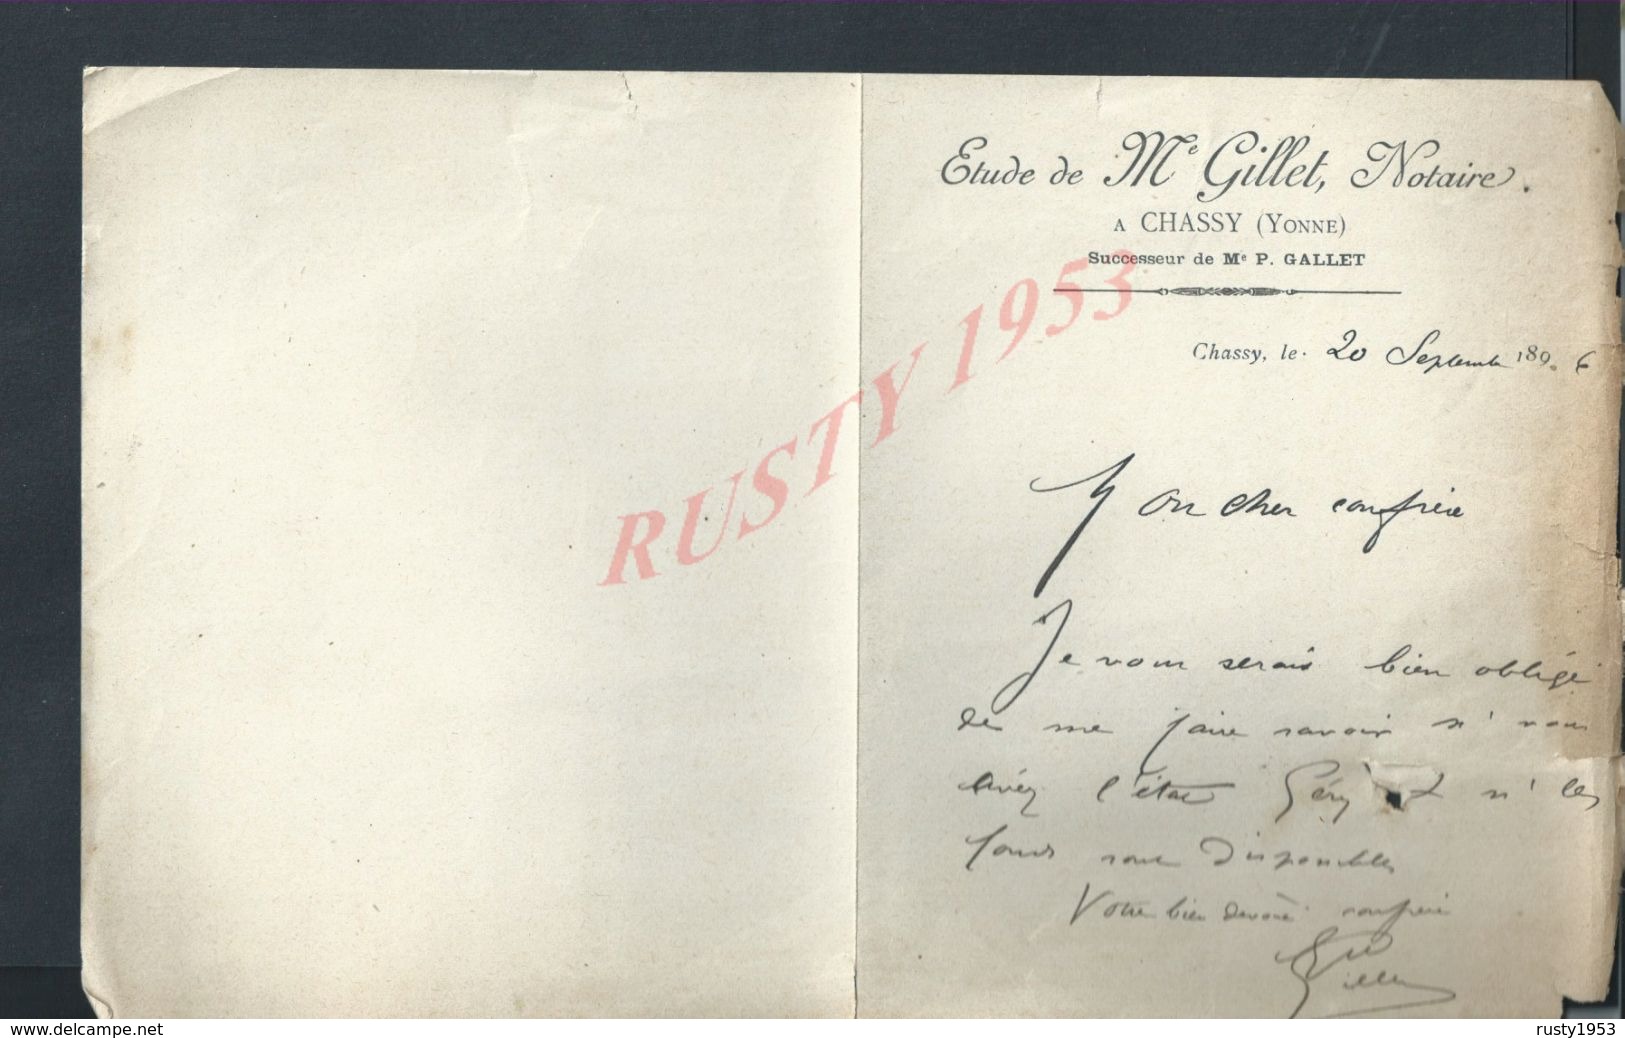 Etude de Me Gillet, Notaire.
A CHASSY (YONNE)
Successeur de Me P. GALLET
Chassy, le 20 Septembre 1896
Mon cher confrère
Je vous serais bien obligé
de me faire savoir si vous
avez l'état Géry et si les
fonds sont disponibles
Votre bien dévoué confrère
Gillet
RUSTY 1953
www.delcampe.net
rusty1953